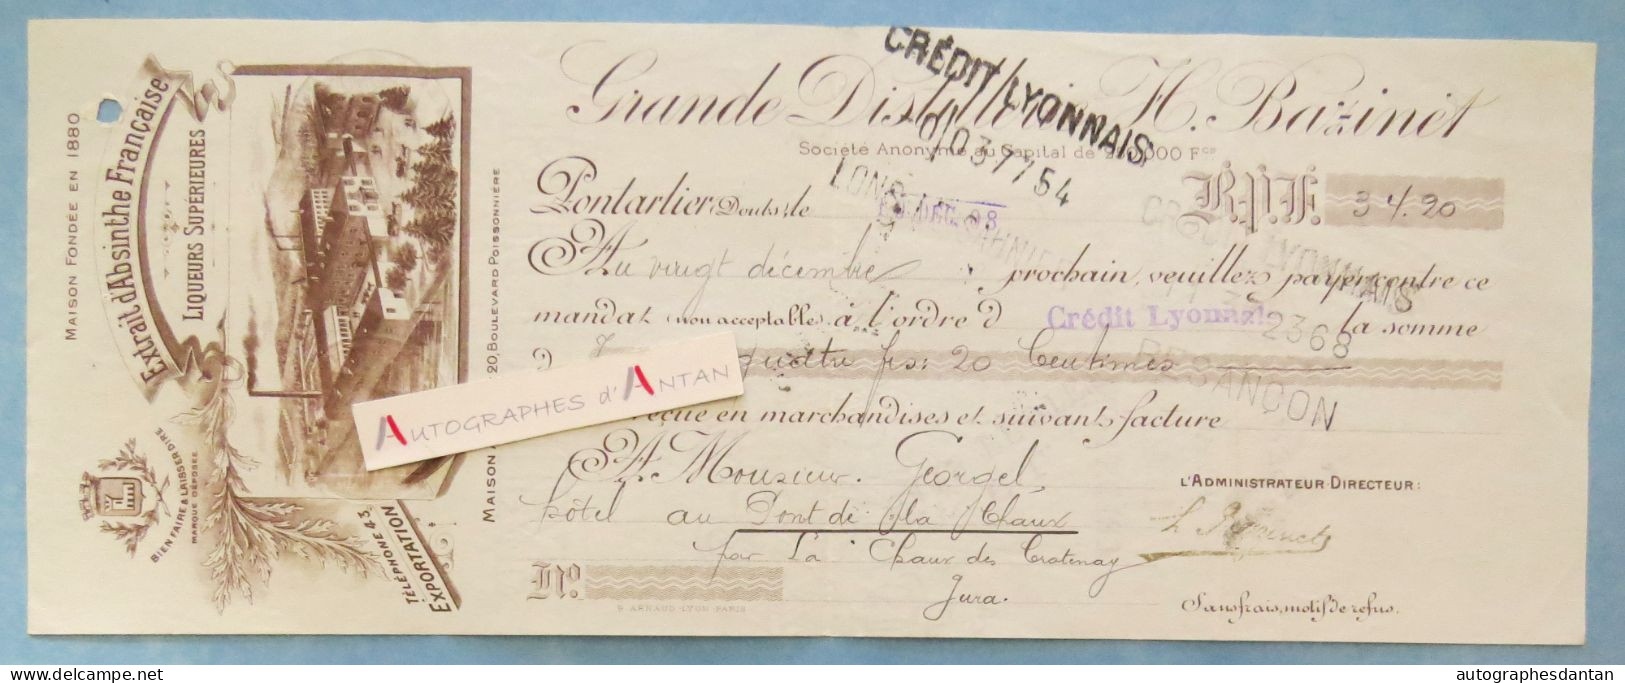 MAISON FONDÉE EN 1880
Extrait d'Absinthe Française
LIQUEURS SUPÉRIEURES
BIEN FAIRE & LAISSER DIRE
MARQUE DÉPOSÉE
TÉLÉPHONE 43.
EXPORTATION
MAISON
20, BOULEVARD POISSONNIÈRE
AUTOGRAPHES d'ANTAN
Grande Distillerie H. Bazinet
Société Anonyme au Capital de 000 Fcs
CRÉDIT LYONNAIS
037754
LONS
Pontarlier (Doubs), le
DEC
B.P.F. 34.20
Au vingt décembre prochain, veuillez payer contre ce
mandat (non acceptable) à l'ordre d Crédit Lyonnais la somme
CRÉDIT LYONNAIS
2368
BESANÇON
d quatre frs: 20 Centimes
reçue en marchandises et suivant facture
A Monsieur Georgel,
hôtel au Pont de la Chaux
par La Chaux des Crotenay
Jura.
L'ADMINISTRATEUR-DIRECTEUR:
No
B. ARNAUD-LYON-PARIS
Sans frais, motif de refus.
autographesdantan